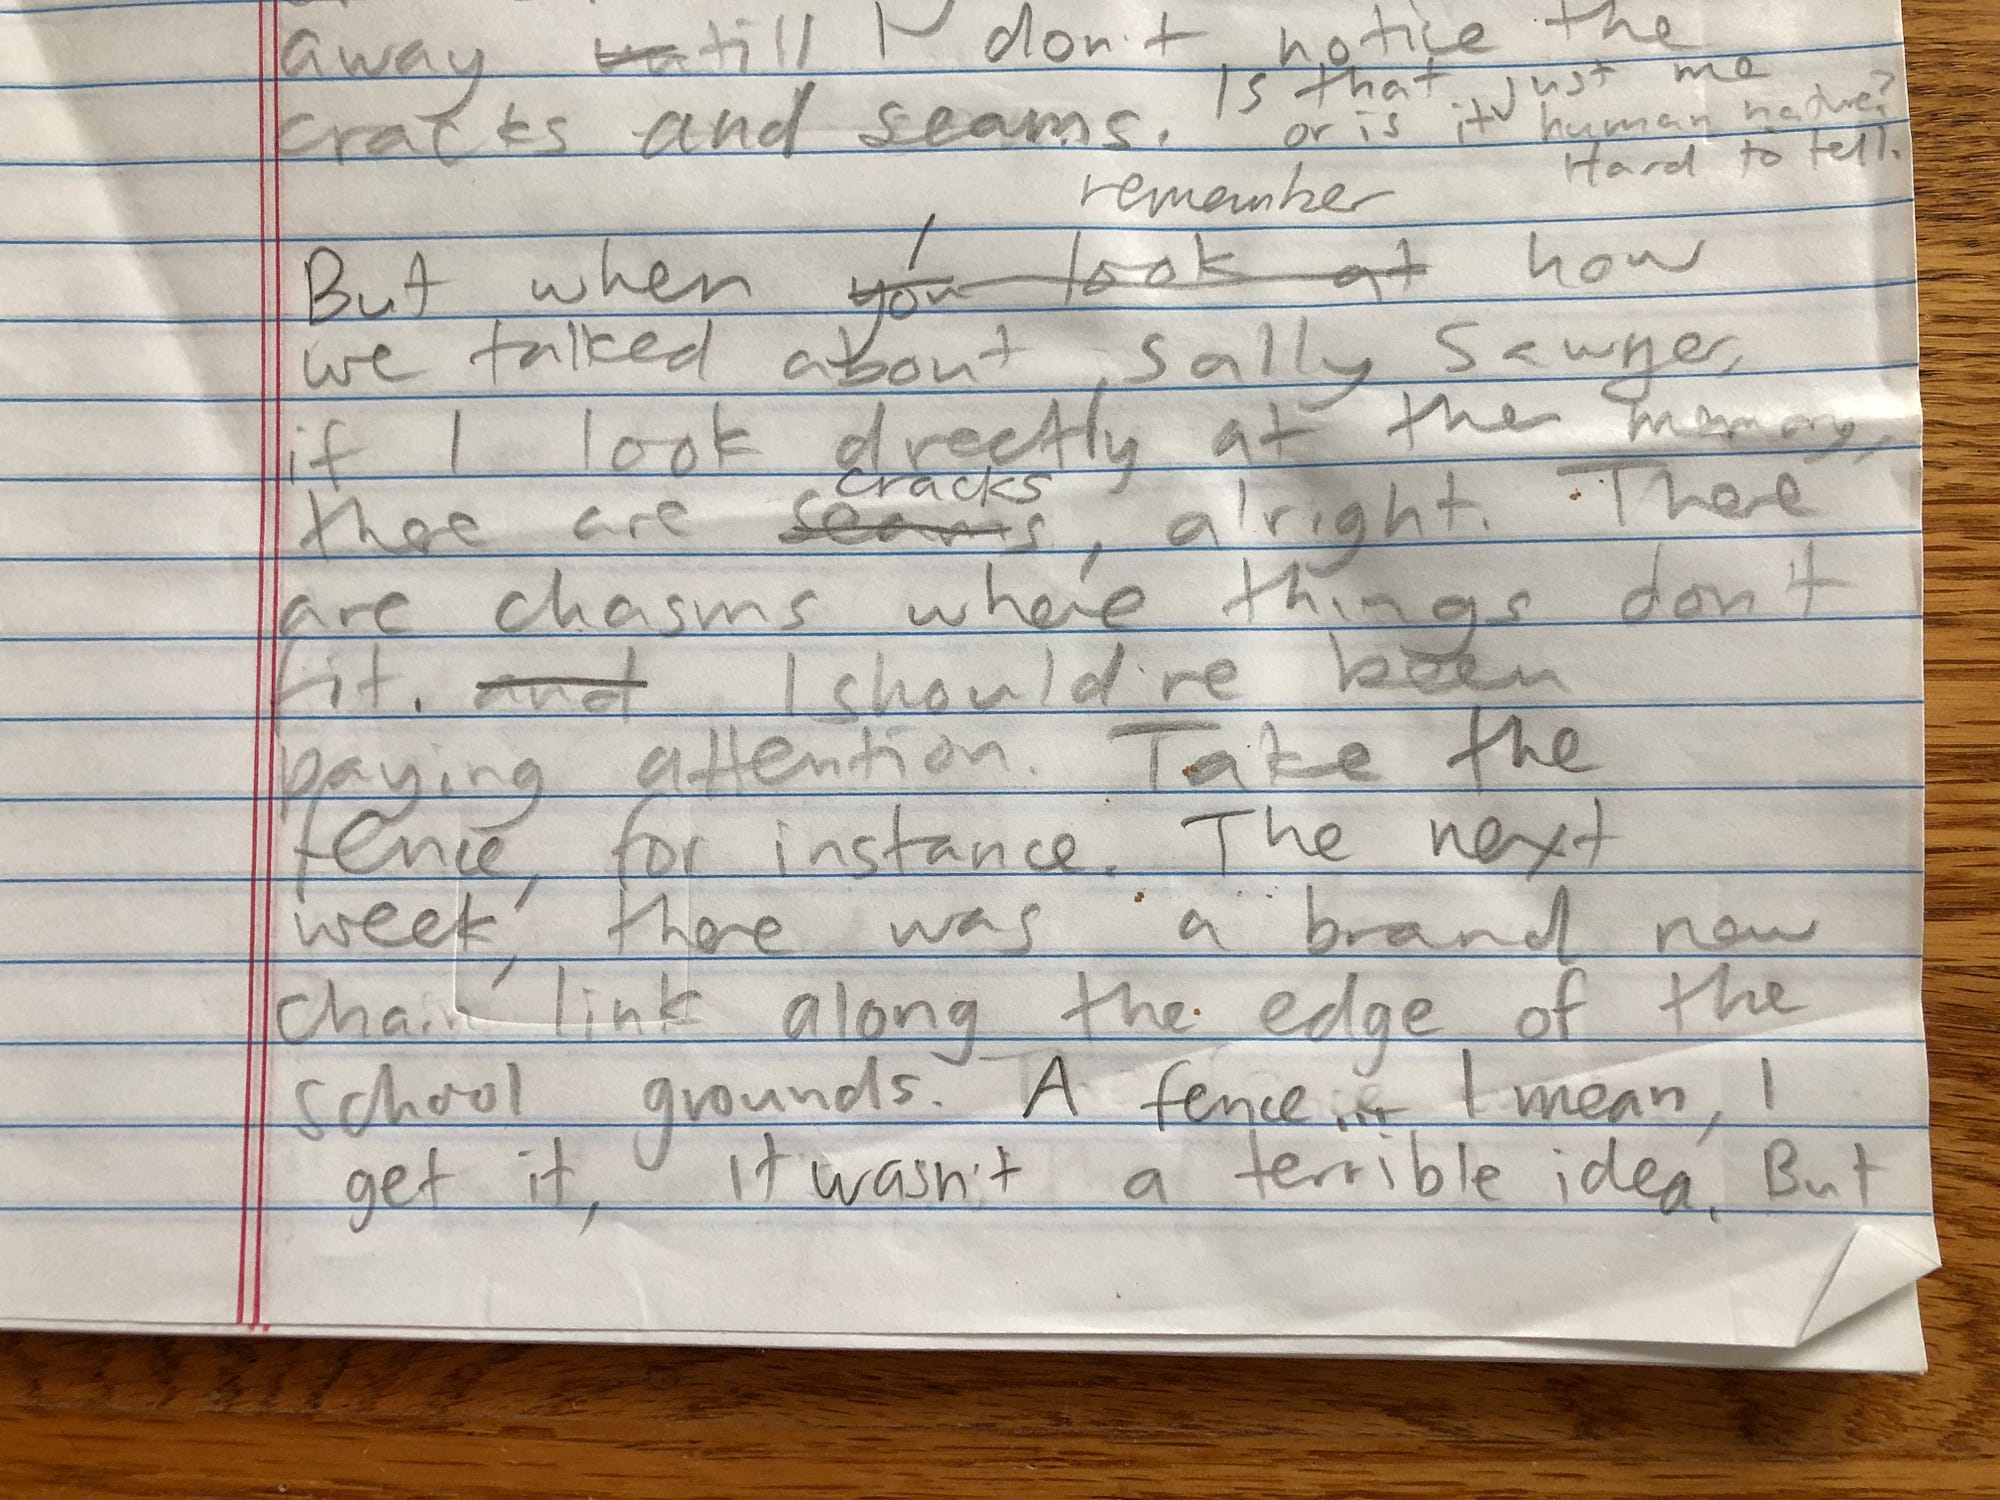 away till I don't notice the
cracks and seams. Is that just me
or is it human nature?
Hard to tell.
remember
But when I you look at how
we talked about Sally Sawyer,
if I look directly at the memory,
cracks
there are seams, alright. There
are chasms where things don't
fit. and I should've been
paying attention. Take the
fence, for instance. The next
week, there was a brand new
chain link along the edge of the
school grounds. A fence... I mean, I
get it, it wasn't a terrible idea. But